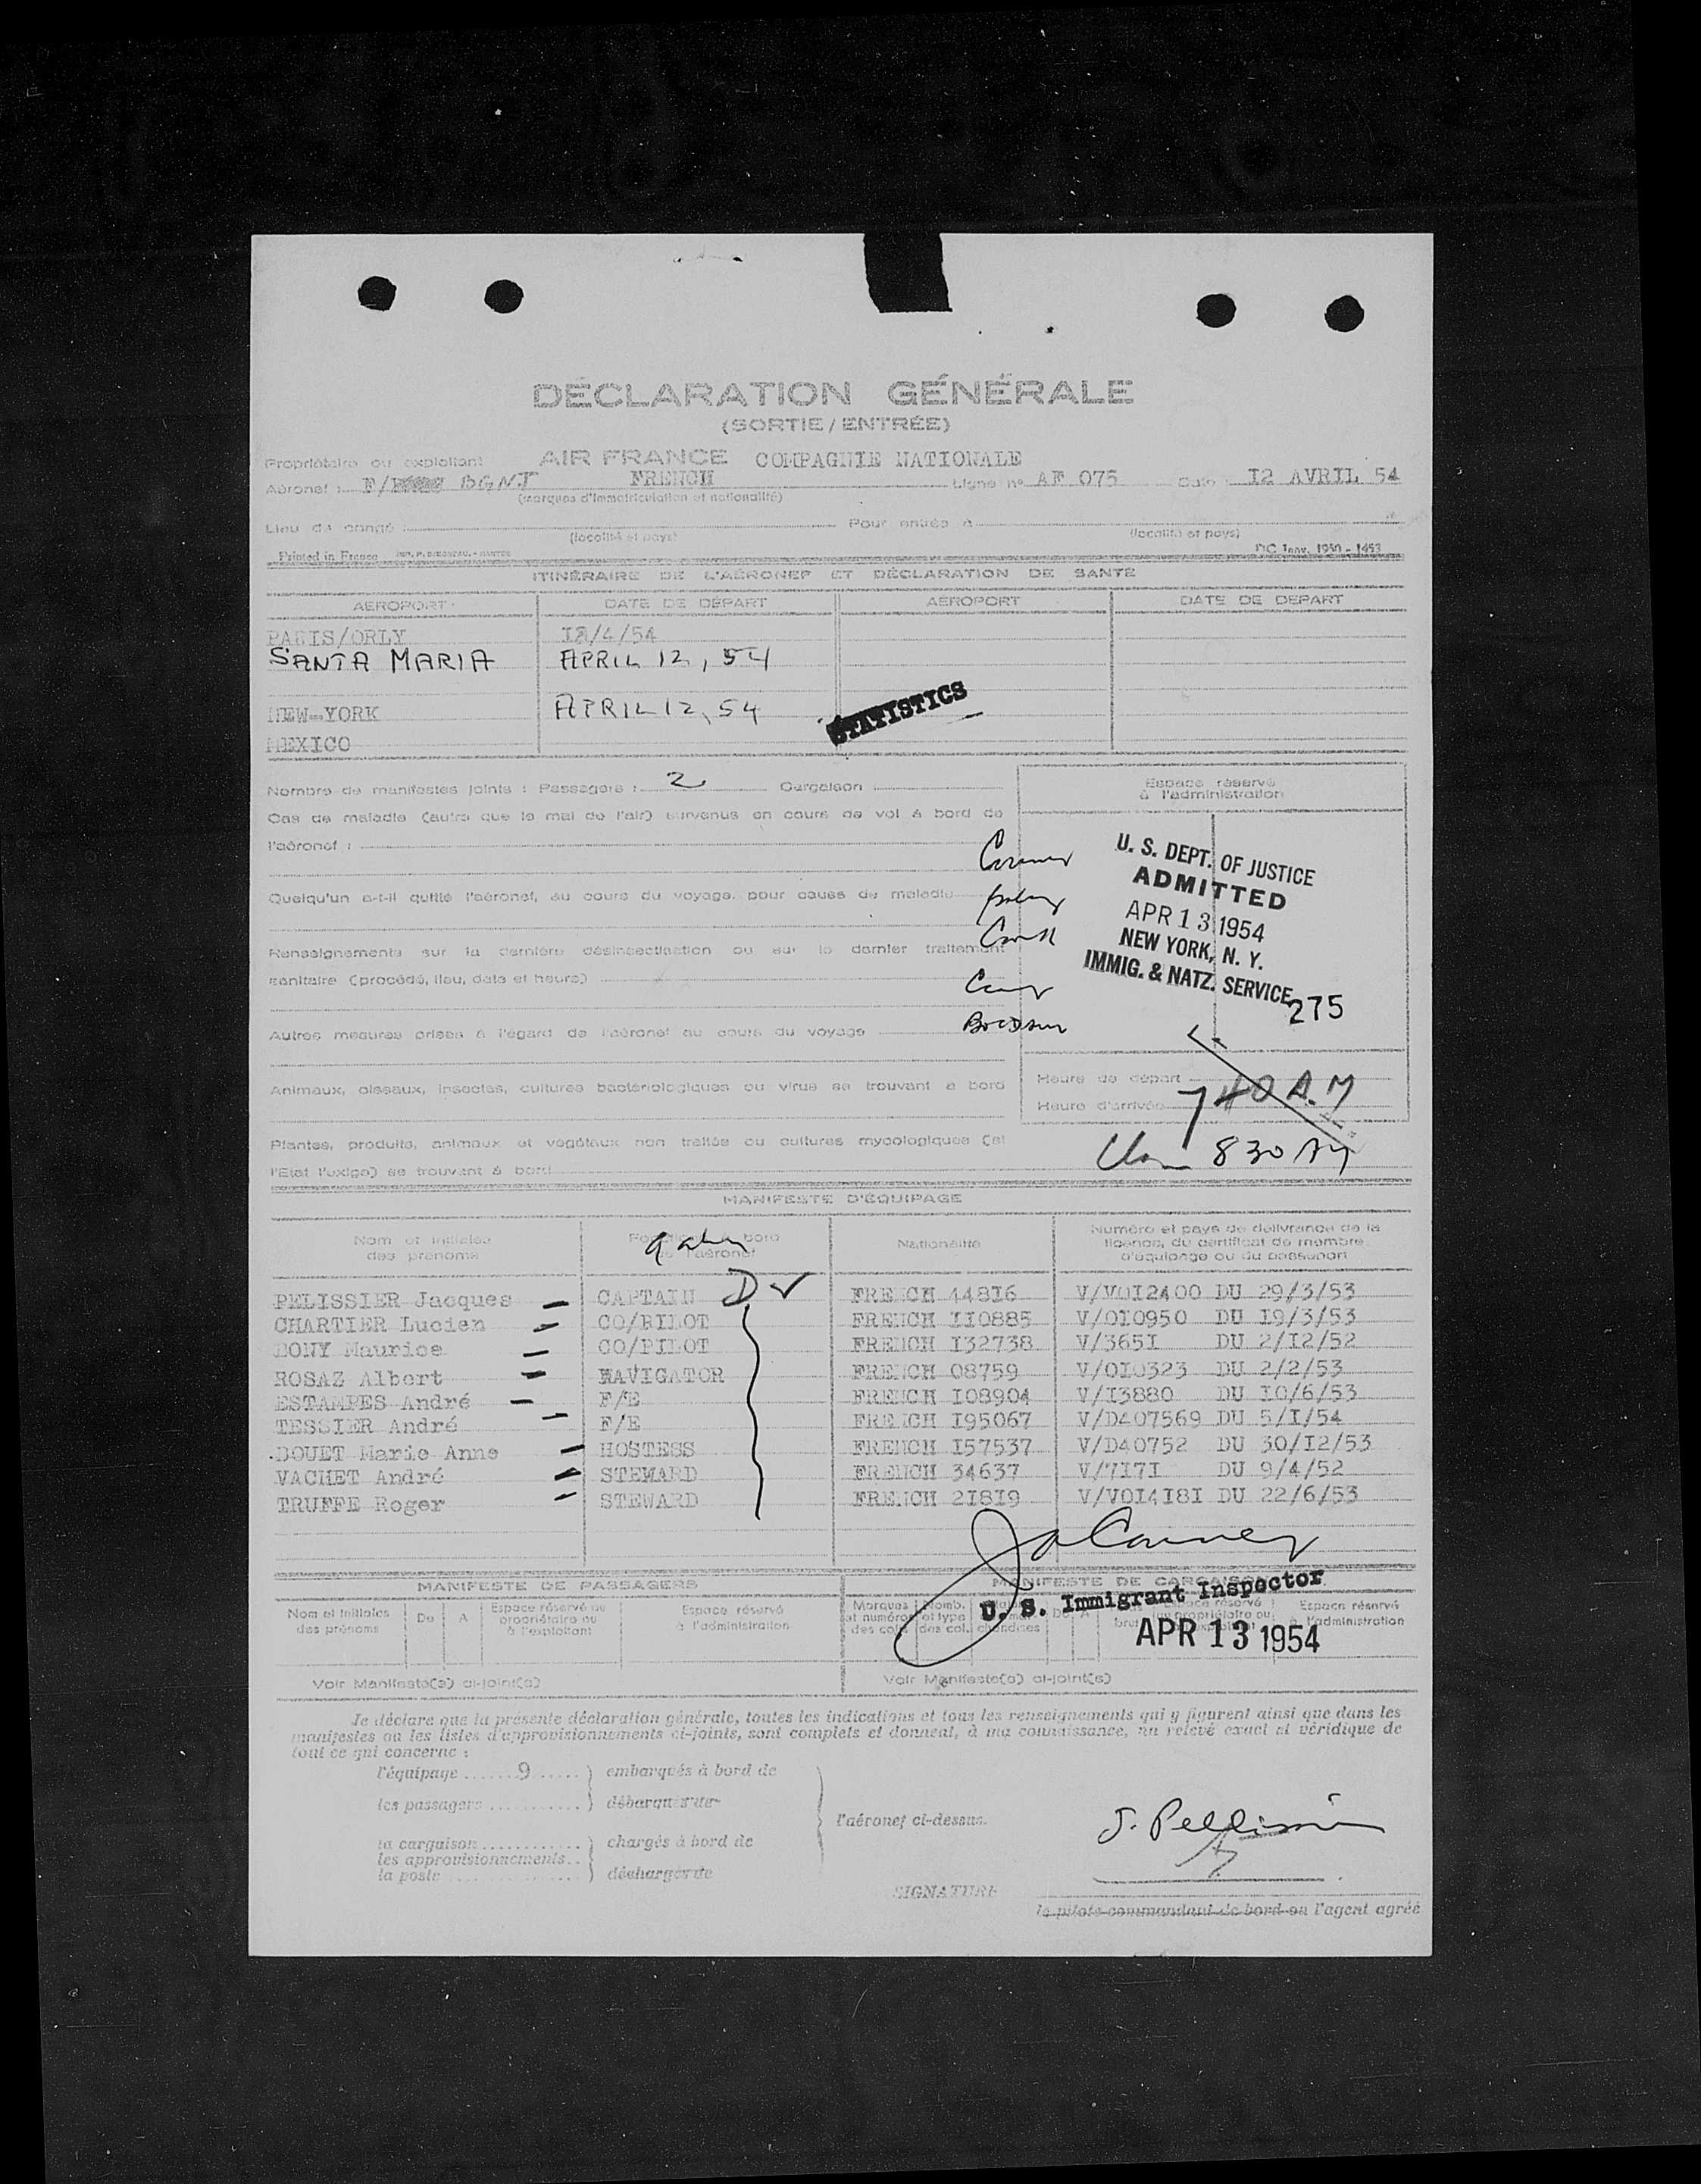 DÉCLARATION GÉNÉRALE
(SORTIE / ENTRÉE)
Propriétaire ou exploitant AIR FRANCE COMPAGNIE NATIONALE
Aéronef : F/ BGNJ FRENCH Ligne n° AF 075 Date : I2 AVRIL 54
(marques d'immatriculation et nationalité)
Lieu de congé Pour entrée à
(localité et pays) (localité et pays)
Printed in France DC Janv. 1950 - 1453
ITINÉRAIRE DE L'AÉRONEF ET DÉCLARATION DE SANTE
AEROPORT DATE DE DÉPART AÉROPORT DATE DE DEPART
PARIS/ORLY I2/4/54
SANTA MARIA APRIL 12, 54
NEW-YORK APRIL 12, 54
STATISTICS
MEXICO
Nombre de manifestes joints : Passagers : 2 Cargaison
Espace réservé à l'administration
Cas de maladie (autre que le mal de l'air) survenus en cours de vol à bord de
l'aéronef :
Quelqu'un a-t-il quitté l'aéronef, au cours du voyage, pour cause de maladie
Renseignements sur la dernière désinsectisation ou sur le dernier traitement
sanitaire (procédé, lieu, date et heure)
Autres mesures prises à l'égard de l'aéronef au cours du voyage
Animaux, oiseaux, insectes, cultures bactériologiques ou virus se trouvant à bord
U. S. DEPT. OF JUSTICE
ADMITTED
APR 13 1954
NEW YORK, N. Y.
IMMIG. & NATZ. SERVICE
275
Heure de départ
Heure d'arrivée 740 A.M
Plantes, produits, animaux et végétaux non traités ou cultures mycologiques (si
830 AM
l'Etat l'exige) se trouvant à bord
MANIFESTE D'ÉQUIPAGE
Nom et initiales des prénoms
Nationalité
Numéro et pays de délivrance de la licence, du certificat de membre d'équipage ou du passeport
PELISSIER Jacques CAPTAIN D FRENCH 44816 V/V0I2400 DU 29/3/53
CHARTIER Lucien CO/PILOT FRENCH II0885 V/0I0950 DU I9/3/53
BONY Maurice CO/PILOT FRENCH I32738 V/365I DU 2/I2/52
ROSAZ Albert NAVIGATOR FRENCH 08759 V/0I0323 DU 2/2/53
ESTAMPES André F/E FRENCH I08904 V/I3880 DU I0/6/53
TESSIER André F/E FRENCH I95067 V/D407569 DU 5/I/54
BOUET Marie Anne HOSTESS FRENCH I57537 V/D40752 DU 30/I2/53
VACHET André STEWARD FRENCH 34637 V/7I7I DU 9/4/52
TRUFFE Roger STEWARD FRENCH 2I8I9 V/V0I4I8I DU 22/6/53
MANIFESTE DE PASSAGERS MANIFESTE DE CARGAISON
U. S. Immigrant Inspector
APR 13 1954
Nom et initiales des prénoms De A Espace réservé au propriétaire ou à l'exploitant Espace réservé à l'administration
Espace réservé à l'administration
Voir Manifeste(s) ci-joint(s) Voir Manifeste(s) ci-joint(s)
Je déclare que la présente déclaration générale, toutes les indications et tous les renseignements qui y figurent ainsi que dans les
manifestes ou les listes d'approvisionnements ci-joints, sont complets et donnent, à ma connaissance, un relevé exact et véridique de
tout ce qui concerne :
l'équipage 9 embarqués à bord de
les passagers débarqués de
l'aéronef ci-dessus.
la cargaison chargés à bord de
les approvisionnements
la poste déchargés de
J. Pellissier
SIGNATURE
le pilote commandant de bord ou l'agent agréé